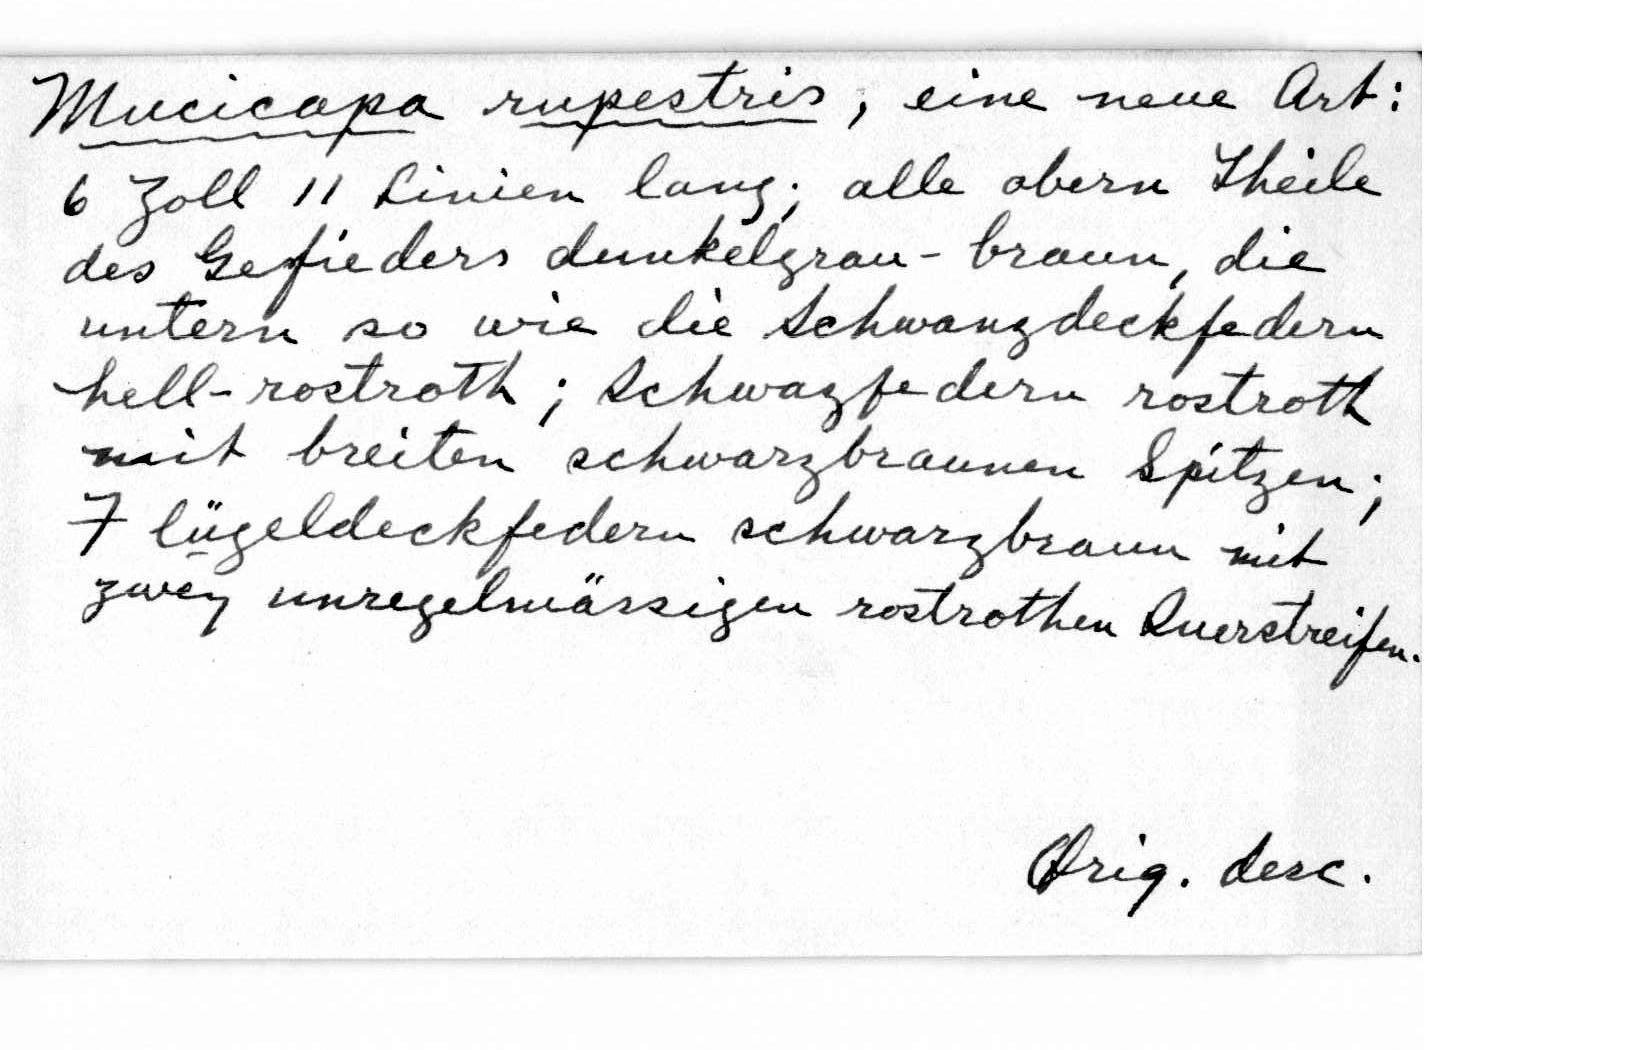 Mucicapa rupestris, eine neue Art:
6 Zoll 11 Linien lang; alle obern Theile
des Gefieders dunkelgrau-braun, die
untern so wie die Schwanzdeckfedern
hell-rostroth; Schwazfedern rostroth
mit breiten schwarzbraunen Spitzen;
Flügeldeckfedern schwarzbraun mit
zwey unregelmässigen rostrothen Querstreifen.
Orig. desc.